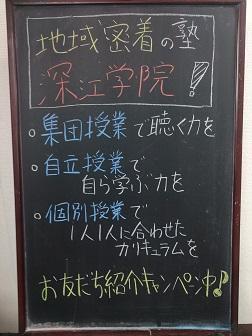 地域密着の塾
深江学院!
。集団授業で聴く力を
。自立授業で
自ら学ぶ力を
。個別授業で
1人1人に合わせた
カリキュラムを
お友だち紹介キャンペーン中♪